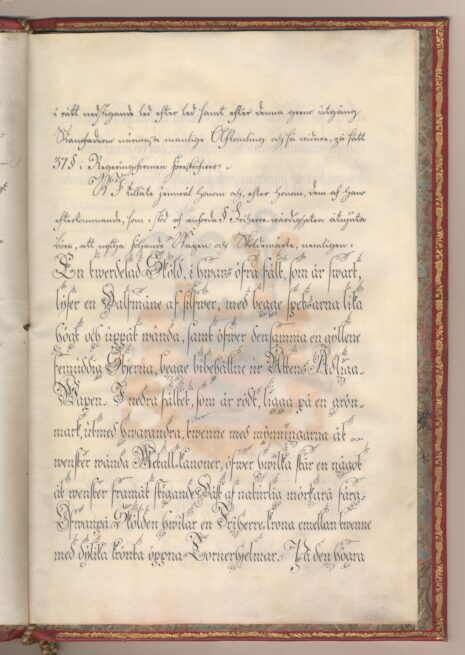 i rätt nedstigande led efter led samt efter denna grens utgång
Stamfadrens närmaste manlige Afkomling och så vidare, på sätt
37 § i Regeringsformen föreskrifver.
WJ tillåte jemväl honom och, efter honom, dem af hans
efterkommande, som i stöd af anförde § Friherre-värdigheten åtnjuta
böra, att nyttja följande Wapen och Sköldemärke, nemligen:
En twerdelad Sköld, i hwars öfra fält, som är swart,
lyser en Halfmåne af silfwer, med begge spetsarna lika
högt och uppåt wända, samt öfwer densamma en gyllene
femuddig Stjerna, begge bibehållne ur Ättens Adliga
Wapen. I nedra fältet, som är rödt, ligga på en grön
mark, utmed hwarandra, twenne med mynningarna åt
wenster wända Metall-kanoner, öfwer hwilka står en något
åt wenster framåt stigande Häst af naturlig mörkare färg.
Ofwanpå Skölden hwilar en Friherre-krona emellan twenne
med dylika krönta öppna Tornerhjelmar. På den högra